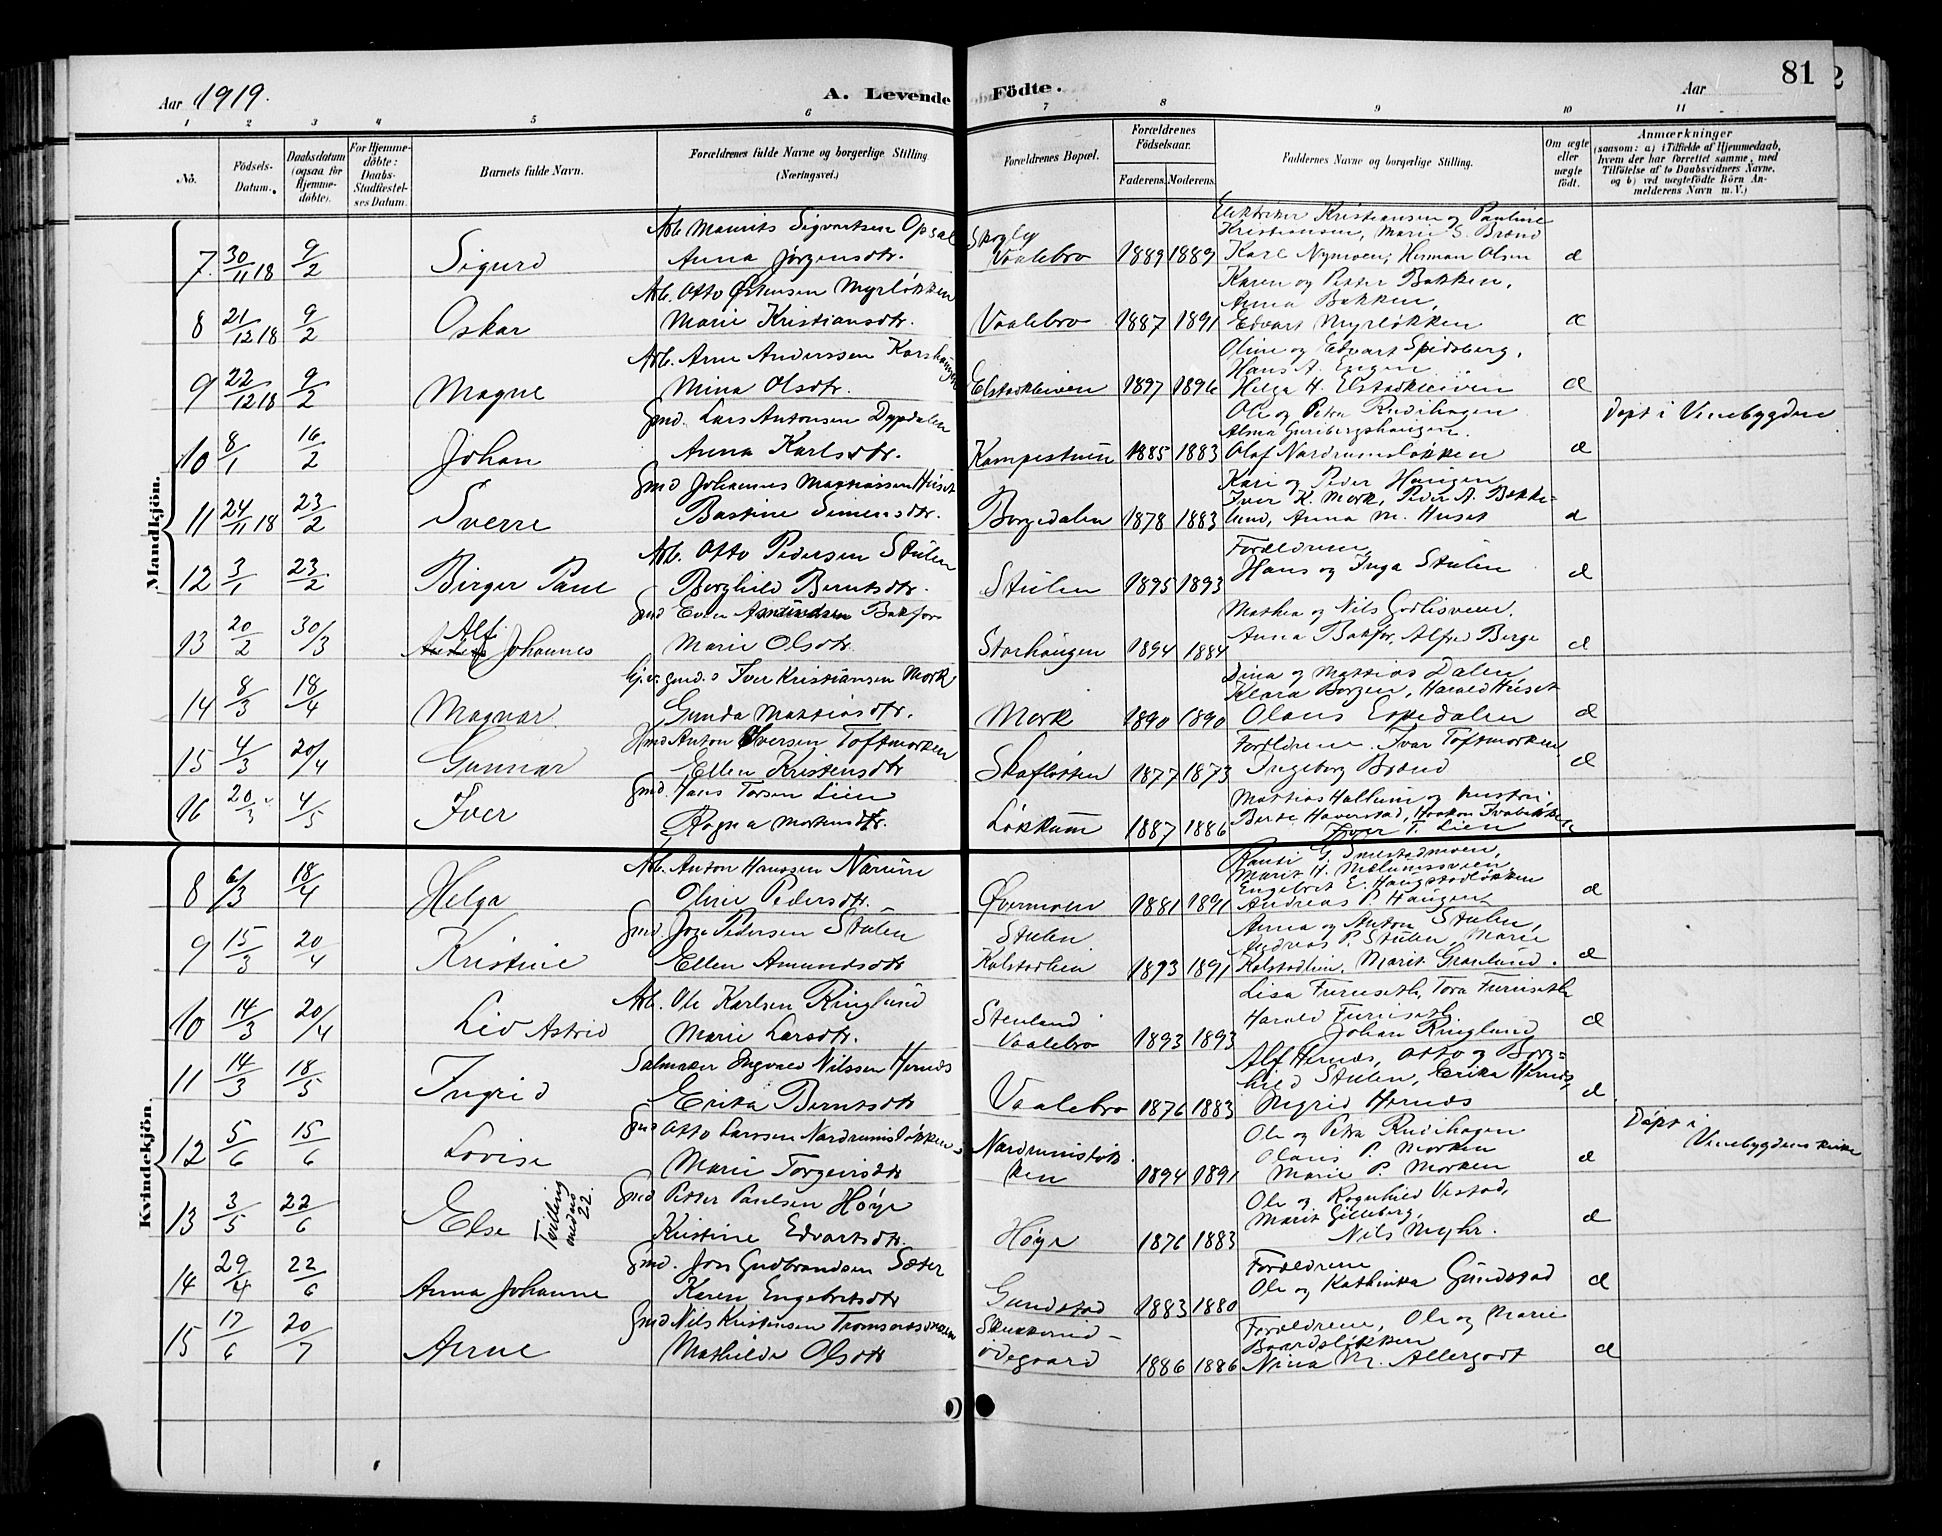 Aar 1919.
A. Levende Födte.
Aar
81
1 2 3 4 5 6 7 8 9 10 11
No.
Födsels-Datum.
Daabsdatum (ogsaa for Hjemme-döbte).
For Hjemme-döbte: Daabs-Stadfæstel-ses Datum.
Barnets fulde Navn.
Forældrenes fulde Navne og borgerlige Stilling (Næringsvei.)
Forældrenes Bopæl.
Forældrenes Födselsaar.
Faderens. Moderens.
Faddernes Navne og borgerlige Stilling.
Om ægte eller uægte födt.
Anmærkninger
(saasom: a) i Tilfælde af Hjemmedaab,
hvem der har forrettet samme, med
Tilföielse af to Daabsvidners Navne,
og b) ved uægtefödte Börn An-
melderens Navn m. V.)
Mandkjön.
7. 30/11 18 9/2 Sigurd
Arb. Maurits Sigvartsen Opsal
Anna Jørgensdtr.
Skogly
Vaalebro 1889 1889
Elektriker Kristiansen og Pauline
Kristiansen, Marie S. Brænd
Karl Nymoen, Herman Olsen
8 21/12 18 9/2 Oskar
Arb. Otto Østensen Myrløkken
Marie Kristiansdtr.
Vaalebro 1887 1891
Karen og Petter Bakken,
Anna Bakken,
Edvart Myrløkken
9 22/12 18 9/2 Magne
Arb. Arne Anderssen Korshaugen
Mina Olsdtr.
Elstadkleiven 1897 1896
Oline og Edvart Spidsberg,
Hans A. Engen
Helga H. Elstadkleiven
10 8/1 16/2 Johan
Gmd. Lars Antonsen Dypdalen
Anna Karlsdtr.
Kampestuen 1885 1883
Ole og Petra Rudihagen
Alma Guribergshaugen.
Olaf Nardrumsløkken
Døpt i Venebygden
11 24/11 18 23/2 Sverre
Gmd Johannes Mathiassen Huset
Bastine Simensdtr.
Borgedalen 1878 1883
Kari og Peder Haugen
Iver K. Mork, Peder A. Bække-
lund, Anna M. Huset
12 3/1 23/2 Birger Paul
Arb. Otto Pedersen Stulen
Borghild Berntsdtr.
Stulen 1895 1893
Forældrene,
Hans og Inga Stulen
13 20/2 30/3 Alf Johannes
Gmd Even Amundsen Bakfor
Marie Olsdtr.
Storhaugen 1894 1884
Mathea og Nils Godlisveen.
Anna Bakfor, Alfred Berge
14 8/3 18/4 Magnar
Gjv. gmd.s Iver Kristiansen Mork
Gunda Mathiasdtr.
Mork 1890 1890
Dina og Mathias Dalen
Klara Borgen, Harald Huset
Olaus Espedalen
15 4/3 20/4 Gunnar
Hmd Anton Iversen Toftmorken
Ellen Kristensdtr
Skafløtten 1877 1873
Forældrene. Ivar Toftmorken
Ingeborg Brænd
16 20/3 4/5 Iver
Gmd. Hans Torsen Lien
Ragna Mortensdtr.
Løkkum 1887 1886
Mathias Hallum og hustru,
Berte Haverstad, Haakon
Iver T. Lien
Kvindekjön.
8 6/3 18/4 Helga
Arb. Anton Hanssen Narum
Oline Pedersdtr.
Øvermoen 1881 1891
Randi G. Smestadmoen,
Marit H. Mælumsveen
Engebret E. Haugstadløkken
Andreas P. Haugen
9 15/3 20/4 Kristine
Gmd. Jon Pedersen Stulen
Ellen Amundsdtr
Stulen
Kolstadlien 1893 1891
Anna og Anton Stulen,
Andreas P. Stulen, Marie
Kolstadlien, Marit Granlund.
10 14/3 20/4 Liv Astrid
Arb. Ole Karlsen Ringlund
Marie Larsdtr.
Stenland
Vaalebro 1893 1893
Lisa Furuseth, Tora Furuseth
Harald Furuseth
Johan Ringlund
11 14/3 18/5 Ingrid
Salmaker Ingvald Nilssen Hernæs
Erika Berntsdtr
Vaalebro 1876 1883
Alf Hernæs, Otto og Borg-
hild Stulen, Erika Hernæs,
Ingrid Hernæs
12 5/6 15/6 Lovise
Gmd Otto Larssen Nardrumsløkken
Marie Torgeirsdtr
Nardrumsløk-
ken 1894 1891
Ole og Petra Rudihagen
Olaus P. Morken
Marie P. Morken
Døpt i
Venebygdens kirke
13 3/5 22/6 Else
Tvilling under 22.
Gmd Petter Paulsen Høye
Kristine Edvartsdtr.
Høye 1876 1883
Ole og Ragnhild Vestad,
Marit Gilleberg,
Nils Myhr.
14 29/4 22/6 Anna Johanne
Gmd. Jon Gudbrandsen Sæter
Karen Engebretsdtr
Gundstad 1883 1880
Forældrene
Ole og Kathinka Gundstad
15 17/6 20/7 Anne
Gmd Nils Kristensen
Mathilde Olsdtr
ødegaard 1886 1886
Forældrene, Ole og Marie
Baardsløkken
Nina M. Allergodt